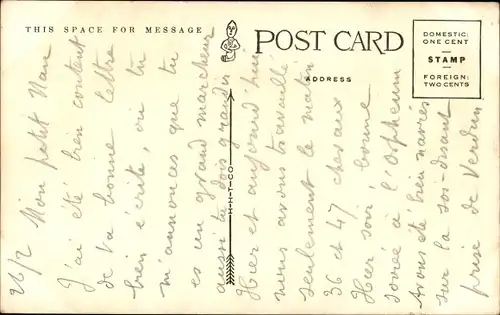 THIS SPACE FOR MESSAGE
POST CARD
ADDRESS
DOMESTIC:
ONE CENT
STAMP
FOREIGN:
TWO CENTS
H-H-T-CO
26/2 Mon petit Nan
J'ai été bien content
de ta bonne lettre
bien écrite, où tu
m'annonces que tu
es un grand marcheur
aussi tu dois grandir
Hier et aujourd'hui
nous avons travaillé
seulement le matin
36 et 47 chevaux
Hier soir, bonne
soirée à l'Orpheum
Avons été bien navrés
sur la soi-disant
prise de Verdun